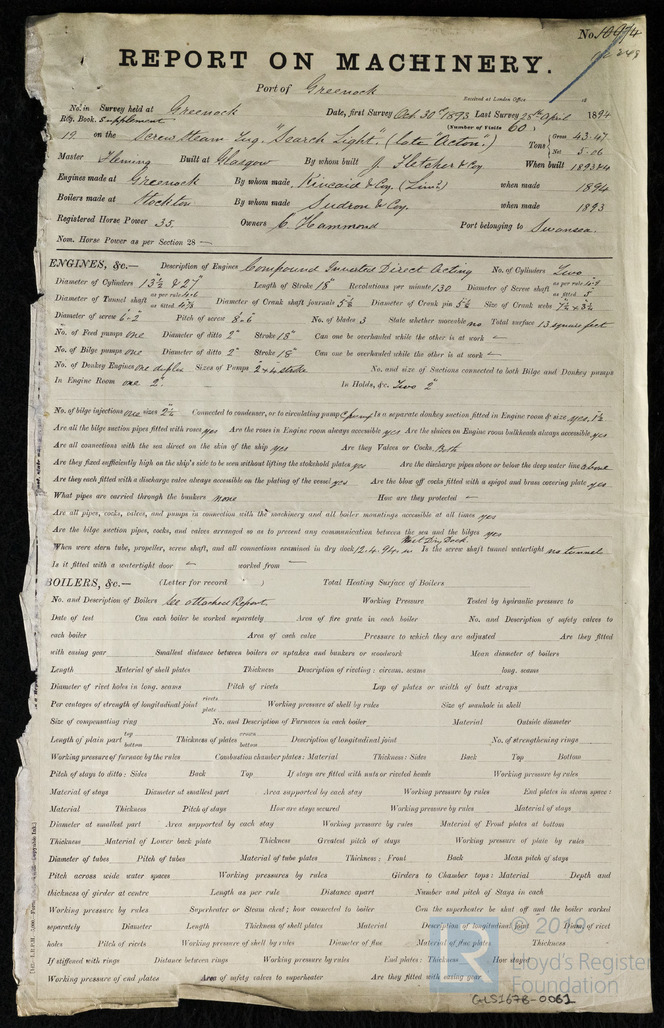 No. 10974
REPORT ON MACHINERY.
Port of Greenock
Received at London Office 18
No. in Survey held at Greenock Date, first Survey Oct 30th 1893 Last Survey 28th April 1894
Reg. Book. Supplement (Number of Visits 60)
19 on the Screw Steam Tug "Search Light" (late "Acton") Tons Gross 43.47 Net 5.06
Master Fleming Built at Glasgow By whom built J. Fletcher & Coy When built 1893 & 4
Engines made at Greenock By whom made Kincaid & Coy. (Limd) when made 1894
Boilers made at Stockton By whom made Sudron & Coy. when made 1893
Registered Horse Power 35 Owners C. Hammond Port belonging to Swansea
Nom. Horse Power as per Section 28 —
ENGINES, &c.— Description of Engines Compound Inverted Direct Acting No. of Cylinders Two
Diameter of Cylinders 13½" & 27" Length of Stroke 18" Revolutions per minute 130 Diameter of Screw shaft as per rule as fitted 5
Diameter of Tunnel shaft as per rule as fitted 4⅞ Diameter of Crank shaft journals 5⅛ Diameter of Crank pin 5⅛ Size of Crank webs
Diameter of screw 6-2 Pitch of screw 8-6 No. of blades 3 State whether moveable no Total surface 13 square feet
No. of Feed pumps one Diameter of ditto 2" Stroke 18" Can one be overhauled while the other is at work —
No. of Bilge pumps one Diameter of ditto 2" Stroke 18" Can one be overhauled while the other is at work —
No. of Donkey Engines One duplex Sizes of Pumps 2 x 4 stroke No. and size of Suctions connected to both Bilge and Donkey pumps
In Engine Room one 2" In Holds, &c. Two 2"
No. of bilge injections one sizes 2½ Connected to condenser, or to circulating pump C. pump Is a separate donkey suction fitted in Engine room & size yes,
Are all the bilge suction pipes fitted with roses yes Are the roses in Engine room always accessible yes Are the sluices on Engine room bulkheads always accessible yes
Are all connections with the sea direct on the skin of the ship yes Are they Valves or Cocks Both
Are they fixed sufficiently high on the ship's side to be seen without lifting the stokehold plates yes Are the discharge pipes above or below the deep water line above
Are they each fitted with a discharge valve always accessible on the plating of the vessel yes Are the blow off cocks fitted with a spigot and brass covering plate yes
What pipes are carried through the bunkers none How are they protected —
Are all pipes, cocks, valves, and pumps in connection with the machinery and all boiler mountings accessible at all times yes
Are the bilge suction pipes, cocks, and valves arranged so as to prevent any communication between the sea and the bilges yes
When were stern tube, propeller, screw shaft, and all connections examined in dry dock 12.4.94 in West Dry Dock Is the screw shaft tunnel watertight no tunnel
Is it fitted with a watertight door — worked from —
BOILERS, &c.— (Letter for record ) Total Heating Surface of Boilers
No. and Description of Boilers See attached Report Working Pressure Tested by hydraulic pressure to
Date of test Can each boiler be worked separately Area of fire grate in each boiler No. and Description of safety valves to
each boiler Area of each valve Pressure to which they are adjusted Are they fitted
with easing gear Smallest distance between boilers or uptakes and bunkers or woodwork Mean diameter of boilers
Length Material of shell plates Thickness Description of riveting: circum. seams long. seams
Diameter of rivet holes in long. seams Pitch of rivets Lap of plates or width of butt straps
Per centages of strength of longitudinal joint rivets plate Working pressure of shell by rules Size of manhole in shell
Size of compensating ring No. and Description of Furnaces in each boiler Material Outside diameter
Length of plain part top bottom Thickness of plates crown bottom Description of longitudinal joint No. of strengthening rings
Working pressure of furnace by the rules Combustion chamber plates: Material Thickness: Sides Back Top Bottom
Pitch of stays to ditto: Sides Back Top If stays are fitted with nuts or riveted heads Working pressure by rules
Material of stays Diameter at smallest part Area supported by each stay Working pressure by rules End plates in steam space:
Material Thickness Pitch of stays How are stays secured Working pressure by rules Material of stays
Diameter at smallest part Area supported by each stay Working pressure by rules Material of Front plates at bottom
Thickness Material of Lower back plate Thickness Greatest pitch of stays Working pressure of plate by rules
Diameter of tubes Pitch of tubes Material of tube plates Thickness: Front Back Mean pitch of stays
Pitch across wide water spaces Working pressures by rules Girders to Chamber tops: Material Depth and
thickness of girder at centre Length as per rule Distance apart Number and pitch of Stays in each
Working pressure by rules Superheater or Steam chest; how connected to boiler Can the superheater be shut off and the boiler worked
separately Diameter Length Thickness of shell plates Material Description of longitudinal joint Diam. of rivet
holes Pitch of rivets Working pressure of shell by rules Diameter of flue Material of flue plates Thickness
If stiffened with rings Distance between rings Working pressure by rules End plates: Thickness How stayed
Working pressure of end plates Area of safety valves to superheater Are they fitted with easing gear
© 2019
Lloyd's Register
Foundation
GLS1678-0061